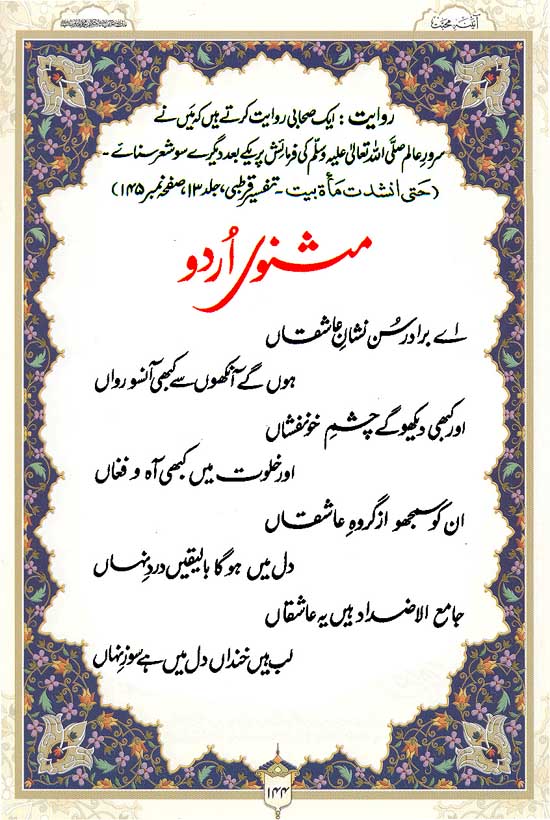 آئینۂ محبت
روایت : ایک صحابی روایت کرتے ہیں کہ میں نے
سرورِ عالم صلَّی اللہ تعالیٰ علیہ وسلّم کی فرمائش پر یکے بعد دیگرے سو شعر سنائے ۔
(حَتی انشدت مَأۃ بیت ۔ تفسیر قرطبی، جلد ۱۳، صفحہ نمبر ۱۴۵)
مثنوی اُردو
اے برادر سُن نشانِ عاشقاں
ہوں گے آنکھوں سے کبھی آنسو رواں
اور کبھی دیکھو گے چشمِ خونفشاں
اور خلوت میں کبھی آہ و فغاں
ان کو سمجھو از گروہِ عاشقاں
دل میں ہوگا بالیقیں دردِ نہاں
جامع الاضداد ہیں یہ عاشقاں
لب ہیں خنداں دل میں ہے سوزِ نہاں
۱۴۴